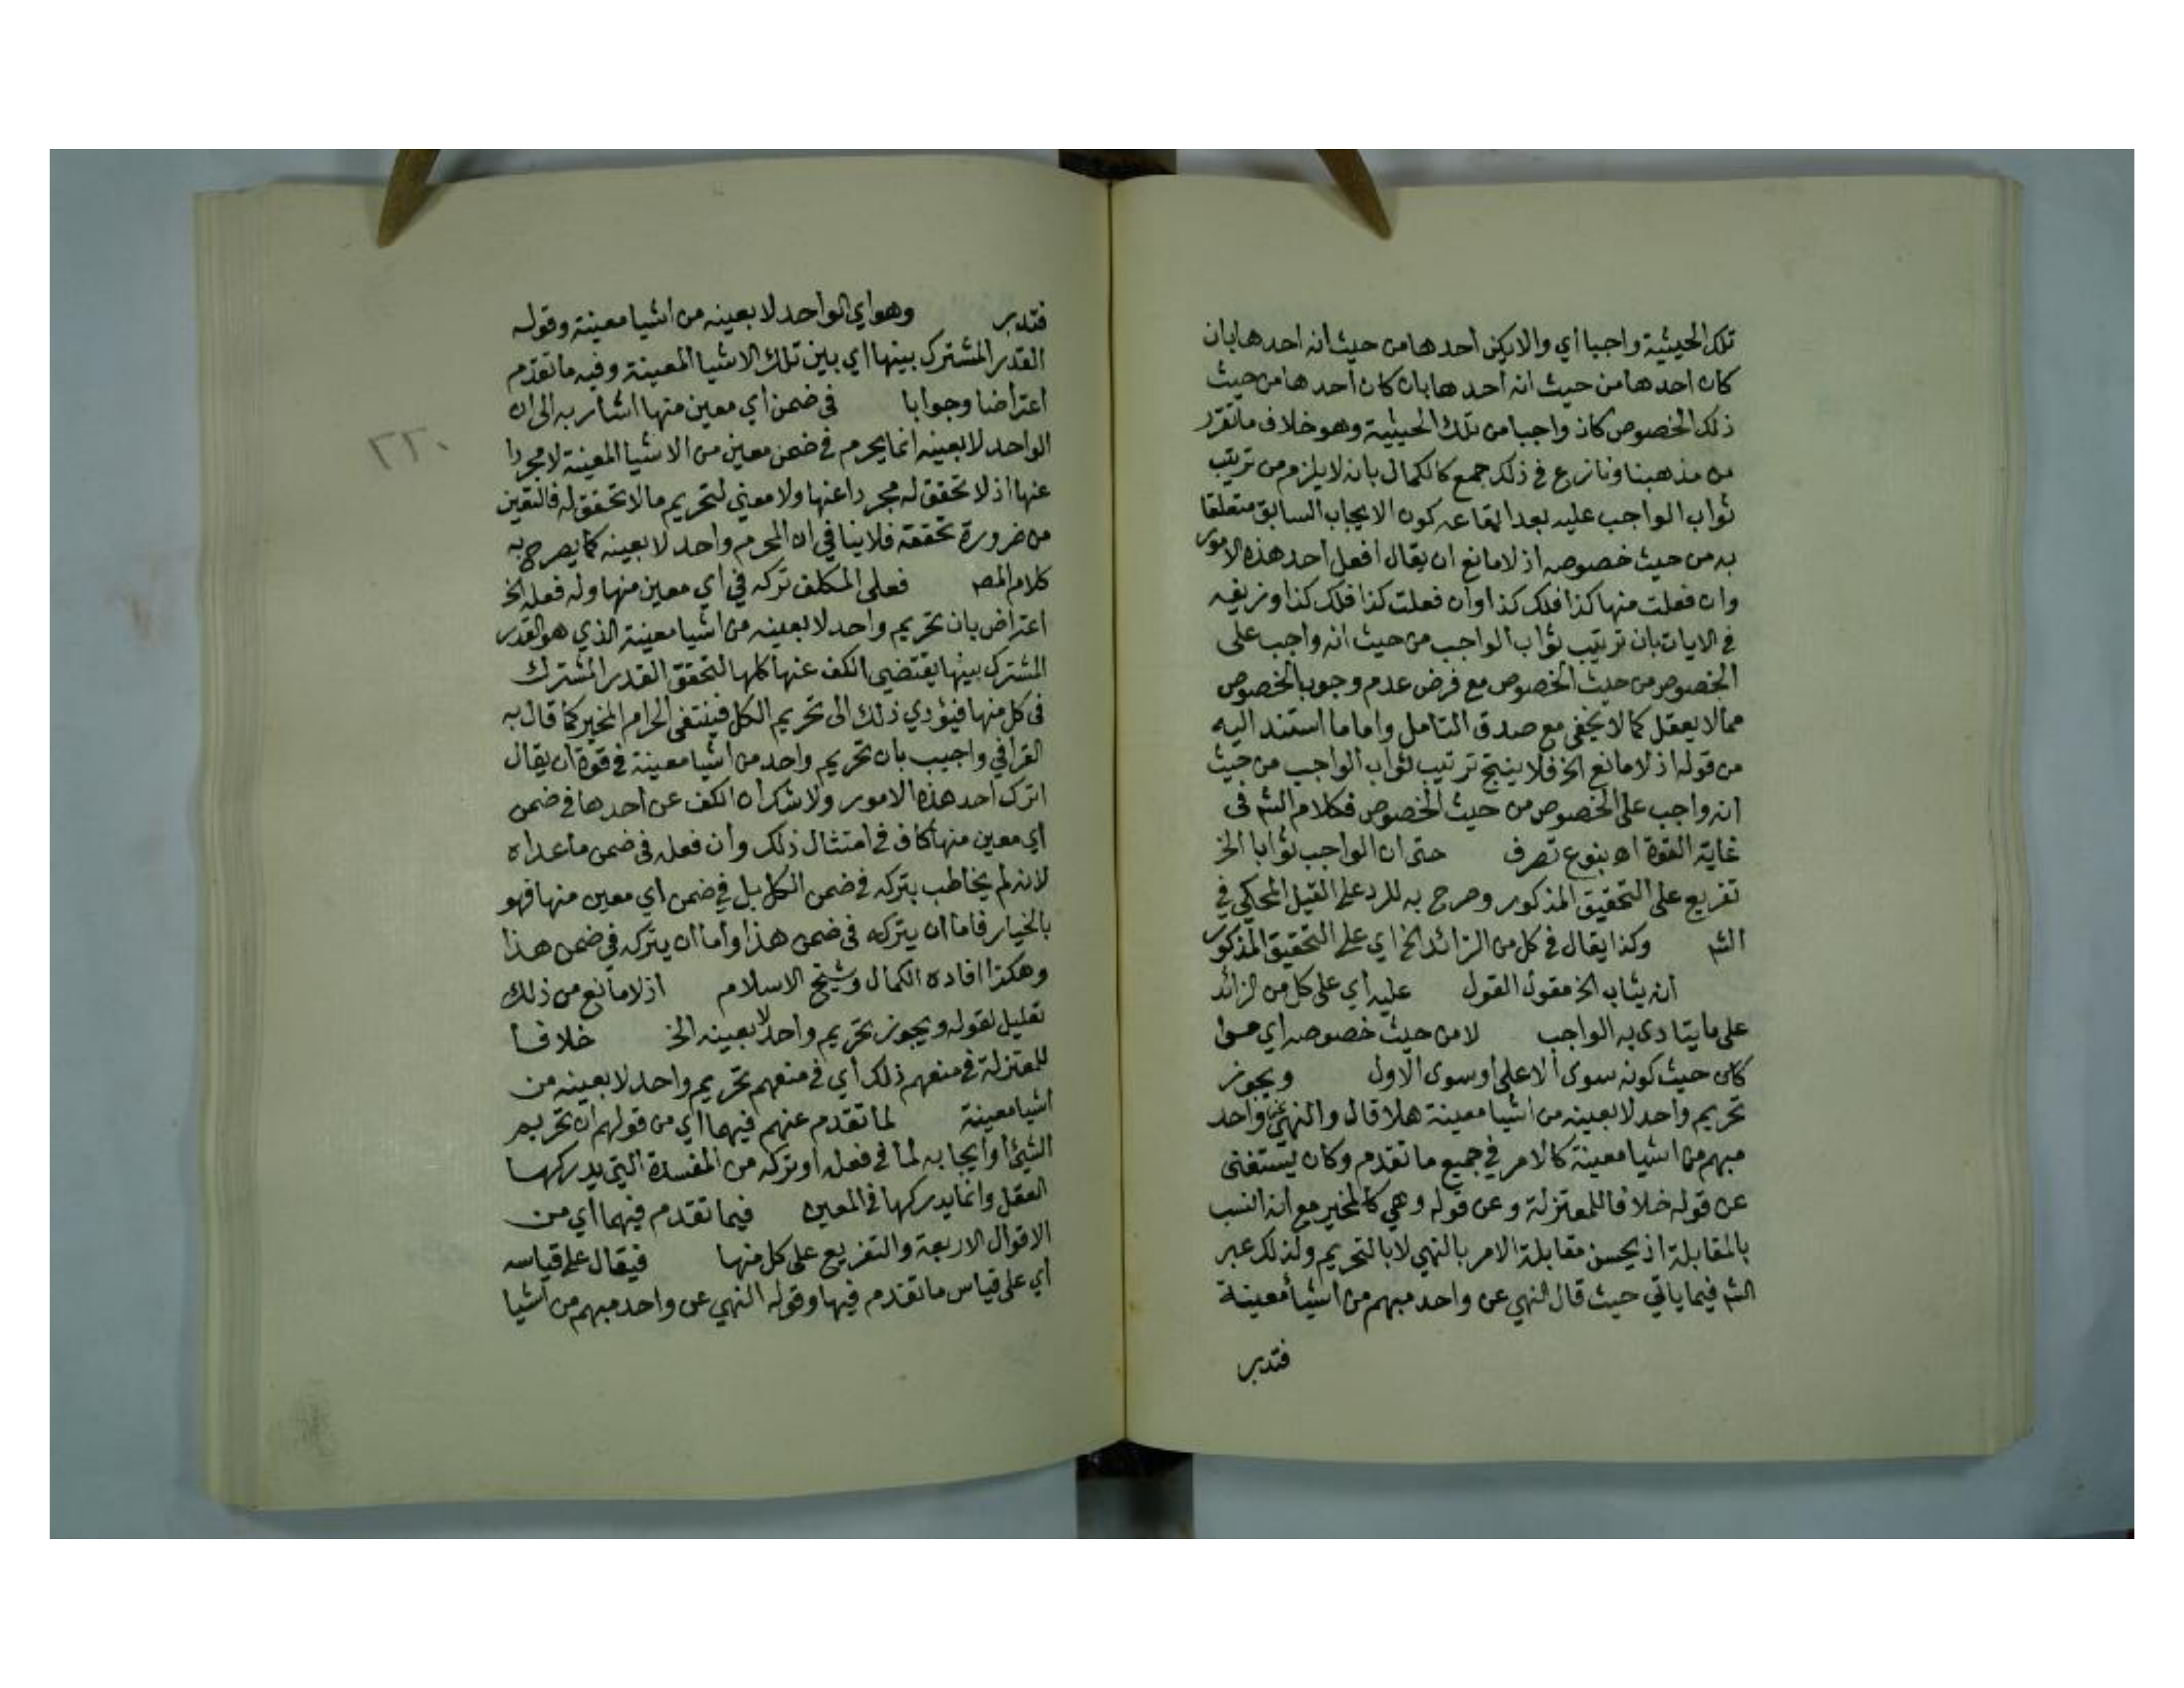 تلك الحيثية واجبا اي والا يكن احدها من حيث انه احدها بان
كان احدها من حيث انه احدها بان كان احدها من حيث
ذلك الخصوص كان واجبا من تلك الحيثية وهو خلاف ما تقرر
من مذهبنا ونازع في ذلك جمع كالكمال بانه لا يلزم من ترتيب
ثواب الواجب عليه بعد ايقاعه كون الايجاب السابق متعلقا
به من حيث خصوصه اذ لا مانع ان يقال افعل احد هذه الامور
وان فعلت منها كذا فلك كذا وان فعلت كذا فلك كذا وزيفه
في الايات بان ترتيب ثواب الواجب من حيث انه واجب على
الخصوص من حيث الخصوص مع فرض عدم وجوب الخصوص
مما لا يعقل كما لا يخفى مع صدق التامل واما ما استند اليه
من قوله اذ لا مانع الخ فلا ينتج ترتيب ثواب الواجب من حيث
انه واجب على الخصوص من حيث الخصوص فكلام الشم في
غاية القوة اه بنوع تصرف حتى ان الواجب ثوابا الخ
تفريع على التحقيق المذكور وصرح به للرد على القيل المحكي في
الشم وكذا يقال في كل من الزائد الخ اي على التحقيق المذكور
انه يثاب الخ مقول القول عليه اي على كل من الزائد
على ما يتادى به الواجب لا من حيث خصوصه اي سوا
كان حيث كونه سوى الاعلى او سوى الاول ويجوز
تحريم واحد لا بعينه من اشيا معينة هلا قال والنهي عن واحد
مبهم من اشيا معينة كالامر في جميع ما تقدم وكان يستغنى
عن قوله خلافا للمعتزلة وعن قوله وهي كالمخير مع انه انسب
بالمقابلة اذ يحسن مقابلة الامر بالنهي لا بالتحريم ولذلك عبر
الشم فيما ياتي حيث قال النهي عن واحد مبهم من اشيا معينة
فتدبر
فتدبر وهو اي الواحد لا بعينه من اشيا معينة وقوله
القدر المشترك بينها اي بين تلك الاشيا المعينة وفيه ما تقدم
اعتراضا وجوابا في ضمن اي معين منها اشار به الى ان
الواحد لا بعينه انما يحرم في ضمن معين من الاشيا المعينة لا مجردا
عنها اذ لا تحقق له مجردا عنها ولا معنى لتحريم ما لا تحقق له فالتعين
من ضرورة تحققه فلا ينافي ان المحرم واحد لا بعينه كما يصرح به
كلام المص فعلى المكلف تركه في اي معين منها وله فعله الخ
اعتراض بان تحريم واحد لا بعينه من اشيا معينة الذي هو القدر
المشترك بينها يقتضي الكف عنها كلها لتحقق القدر المشترك
في كل منها فيؤدي ذلك الى تحريم الكل فينتفي الحرام المخير كما قال به
القرافي واجيب بان تحريم واحد من اشيا معينة في قوة ان يقال
اترك احد هذه الامور ولا شك ان الكف عن احدها في ضمن
اي معين منها كاف في امتثال ذلك وان فعله في ضمن ما عداه
لانه لم يخاطب بتركه في ضمن الكل بل في ضمن اي معين منها فهو
بالخيار فاما ان يتركه في ضمن هذا واما ان يتركه في ضمن هذا
وهكذا افاده الكمال وشيخ الاسلام اذ لا مانع من ذلك
تعليل لقوله ويجوز تحريم واحد لا بعينه الخ خلافا
للمعتزلة في منعهم ذلك اي في منعهم تحريم واحد لا بعينه من
اشيا معينة لما تقدم عنهم فيهما اي من قولهم ان تحريم
الشيئ او ايجابه لما في فعله او تركه من المفسدة التي يدركها
العقل وانما يدركها في المعين فيما تقدم فيهما اي من
الاقوال الاربعة والتفريع على كل منها فيقال على قياسه
اي على قياس ما تقدم فيها وقوله النهي عن واحد مبهم من اشيا
٢٦٠